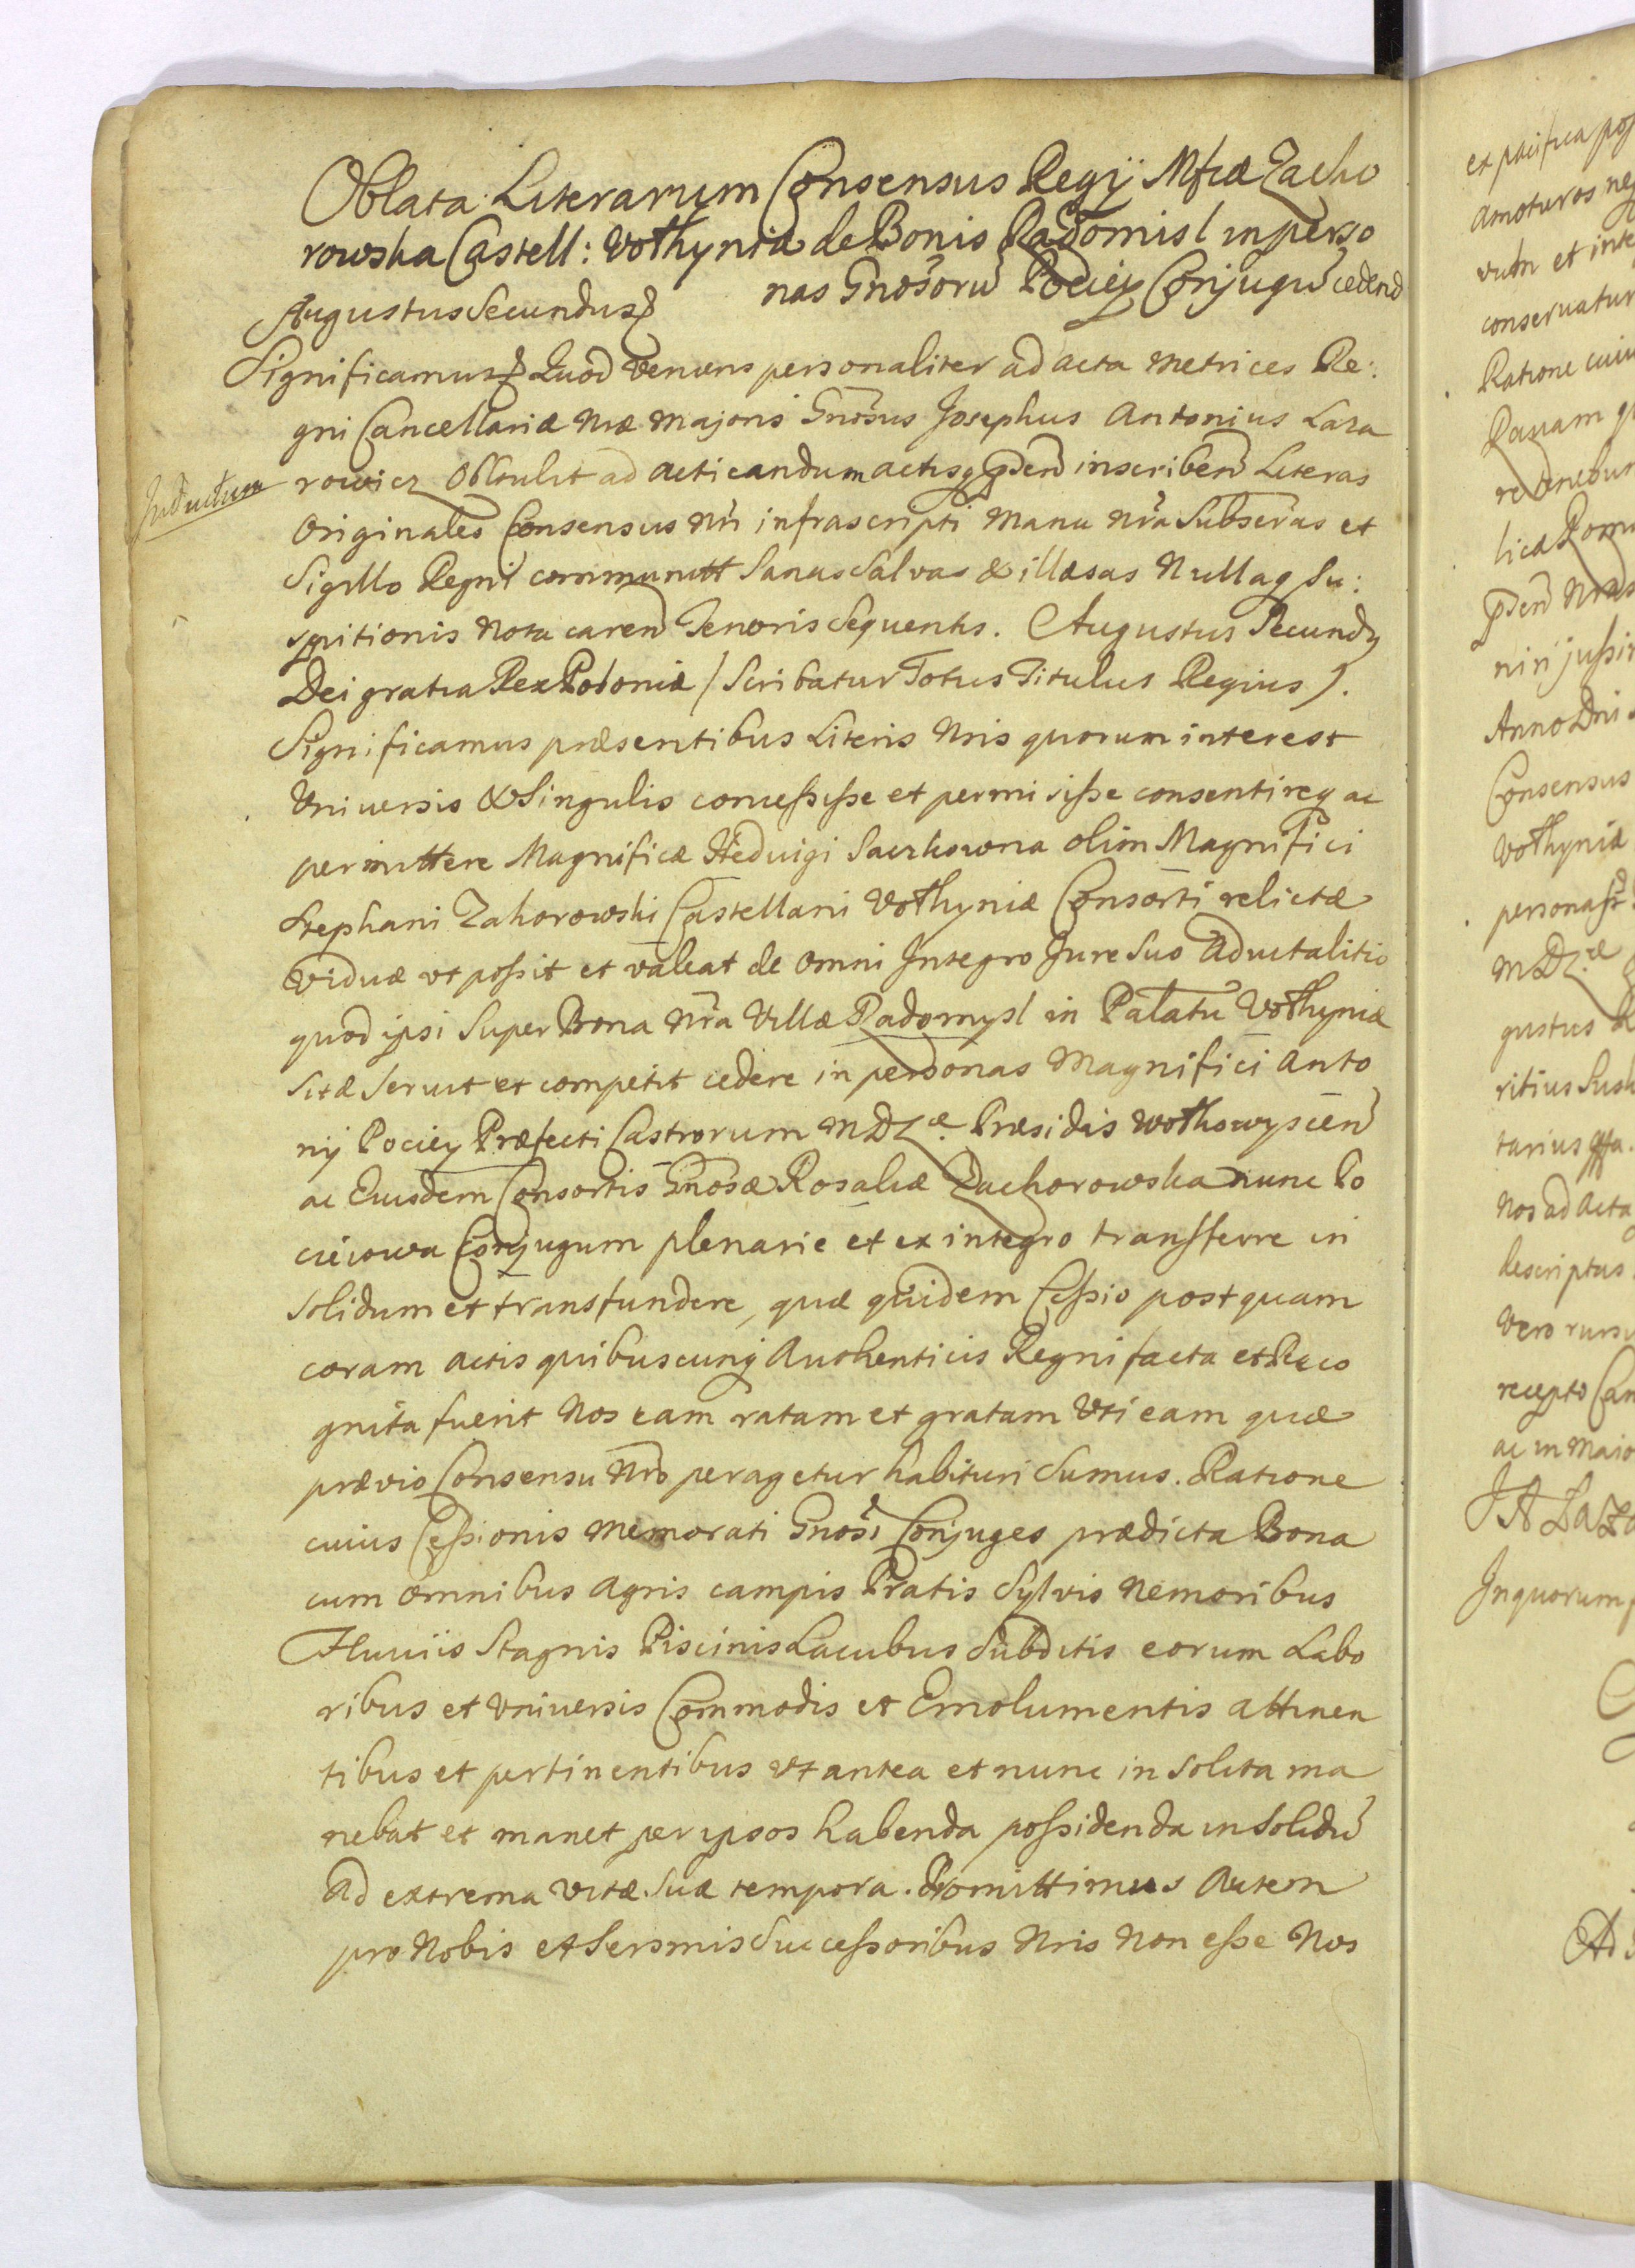 Oblata Literarum Consensus Regÿ Mfcæ Zacho
rowska Castell: Wolhyniæ de Bonis Radomisl in perso
nas Gnosorũ Pociey Conjugũ cedend
Augustus Secundus
Significamus Quod veniens personaliter ad acta Metrices Re:
gni Cancellariæ Næ Majoris Gnosus Josephus Antonius Laza
Inductum
rowicz Obtulit ad acticandum actisq pñtib inscribend Literas
Originales Consensus Nri infrascripti Manu Nra Subscras et
Sigillo Regni communitt Sanas Salvas & illæsas Nullaq Su:
spitionis Nota caren Tenoris Sequentis. Augustus Secundq
Dei gratia Rex Poloniæ / Scribatur Totus Titulus Regius ).
Significamus præsentibus Literis Nris quorum interest
Universis & Singulis concessisse et permisisse consentireq ac
permittere Magnificæ Heduigi Saczkowna olim Magnifici
Stephani Zahorowski Castellani Wolhyniæ Consorti relictæ
Viduæ ut possit et valeat de omni Integro Jure Suo Aduitalitio
quod ipsi Super Bona Nra Villæ Radomysl in Palatũ Wolhyniæ
Sitæ Seruit et competit cedere in personas Magnifici Anto
nij Pociey Præfecti Castrorum M D L æ. Præsidis Wolkowyscen
ac Eiusdem Consortis Gnosæ Rosaliæ Zachorowska nunc Po
cieiowa Conjugum plenarie et ex integro transferre in
solidum et transfundere, quæ quidem Cessio postquam
coram actis quibuscunq Authenticis Regni facta et Reco
gnita fuerit Nos eam ratam et gratam Uti eam quæ
prævio Consensu Nro perageretur habituri Sumus. Ratione
cuius Cessionis Memorati Gnosi Conjuges prædicta Bona
cum omnibus Agris campis Pratis Sylvis Nemoribus
Fluviis Stagnis Piscinis Lacubus Subditis eorum Labo
ribus et Universis Commodis et Emolumentis attinen
tibus et pertinentibus ut antea et nunc in Solita ma
nebat et manet per ipsos habenda possidenda in Solidũ
Ad extrema vitæ Suæ tempora. Promittimus Autem
pro Nobis et Sersmis Successoribus Nris Non esse Nos